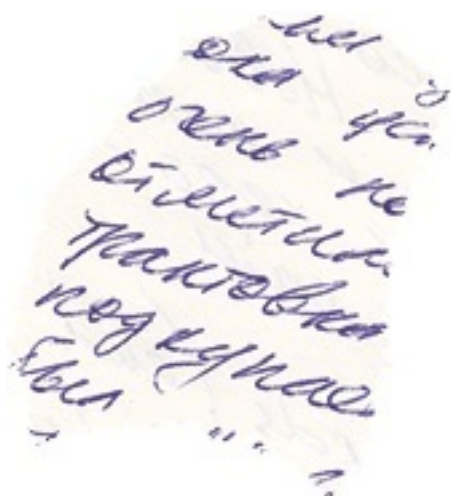 она
очень не
отметил
трактовка
подкупае
был